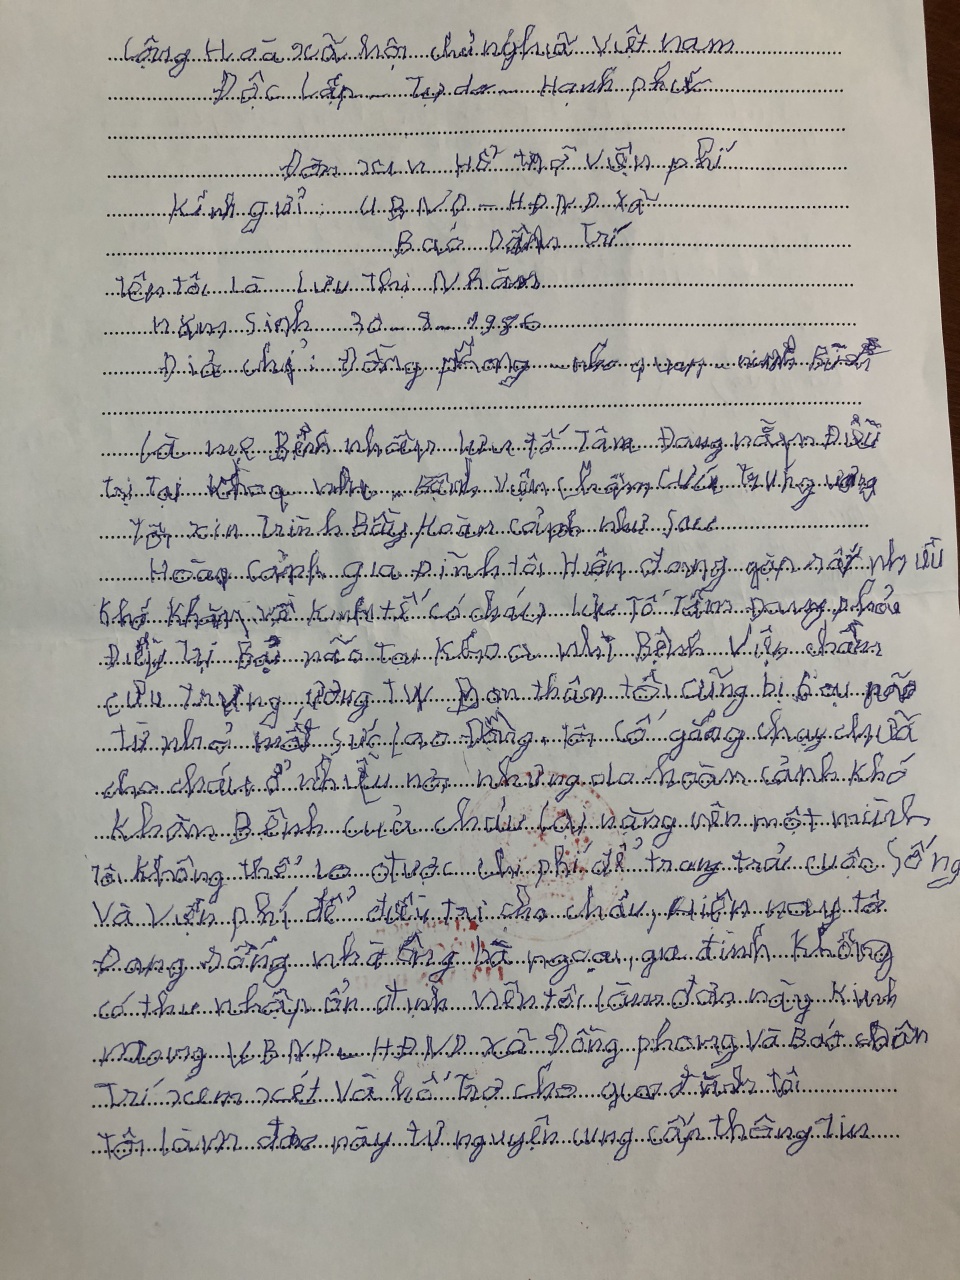 Cộng Hoà xã hội chủ nghĩa việt nam
Độc lập - Tự do - Hạnh phúc
Đơn xin Hỗ trợ viện phí
Kính gửi : UBND - HĐND xã
Báo Dân Trí
tên tôi là Lưu Thị Nhàn
năm sinh 30-8-1986
Địa chỉ: Đồng phong - nho quan - ninh bình
Là mẹ Bệnh nhân lưu tố Tâm Đang nằm Điều
trị tại khoa nhi, viện châm cứu trung ương
Tôi xin Trình Bầy Hoàn cảnh như sau
Hoàn cảnh gia Đình tôi Hiện đang gặp rất nhiều
khó khăn về kinh tế có cháu lưu Tố Tâm Đang phải
Điều Trị Bại não tại Khoa nhi Bệnh Viện châm
cứu trung ương TW Bản thân tôi cũng bị bại não
từ nhỏ mất sức lao Động, tôi cố gắng chạy chữa
cho cháu ở nhiều nơi nhưng do hoàn cảnh khó
khăn Bệnh của cháu lại nặng nên một mình
tôi không thể lo được chi phí để trang trải cuộc sống
và viện phí để điều trị cho cháu, Hiện nay tôi
Đang sống nhà ông bà ngoại, gia đình không
có thu nhập ổn định nên tôi làm đơn này kính
mong UBND - HĐND xã Đồng phong và Báo dân
Trí xem xét và hỗ trợ cho gia đình tôi
tôi làm đơn này tự nguyện cung cấp thông tin